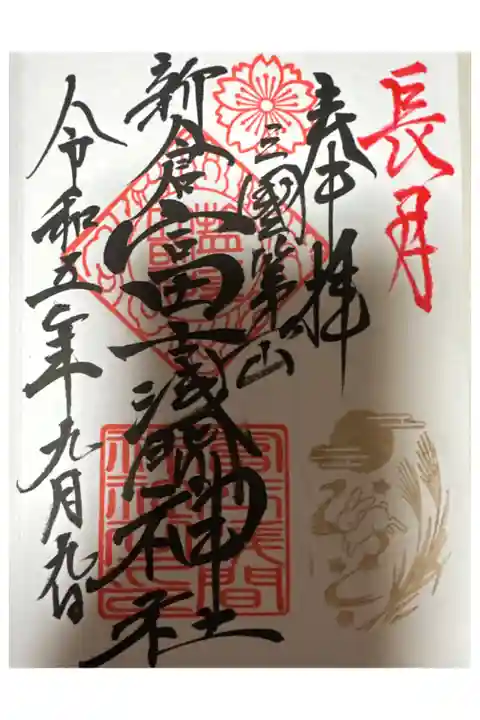 長月
奉拝
三國第一山
新倉富士浅間神社
令和五年九月九日